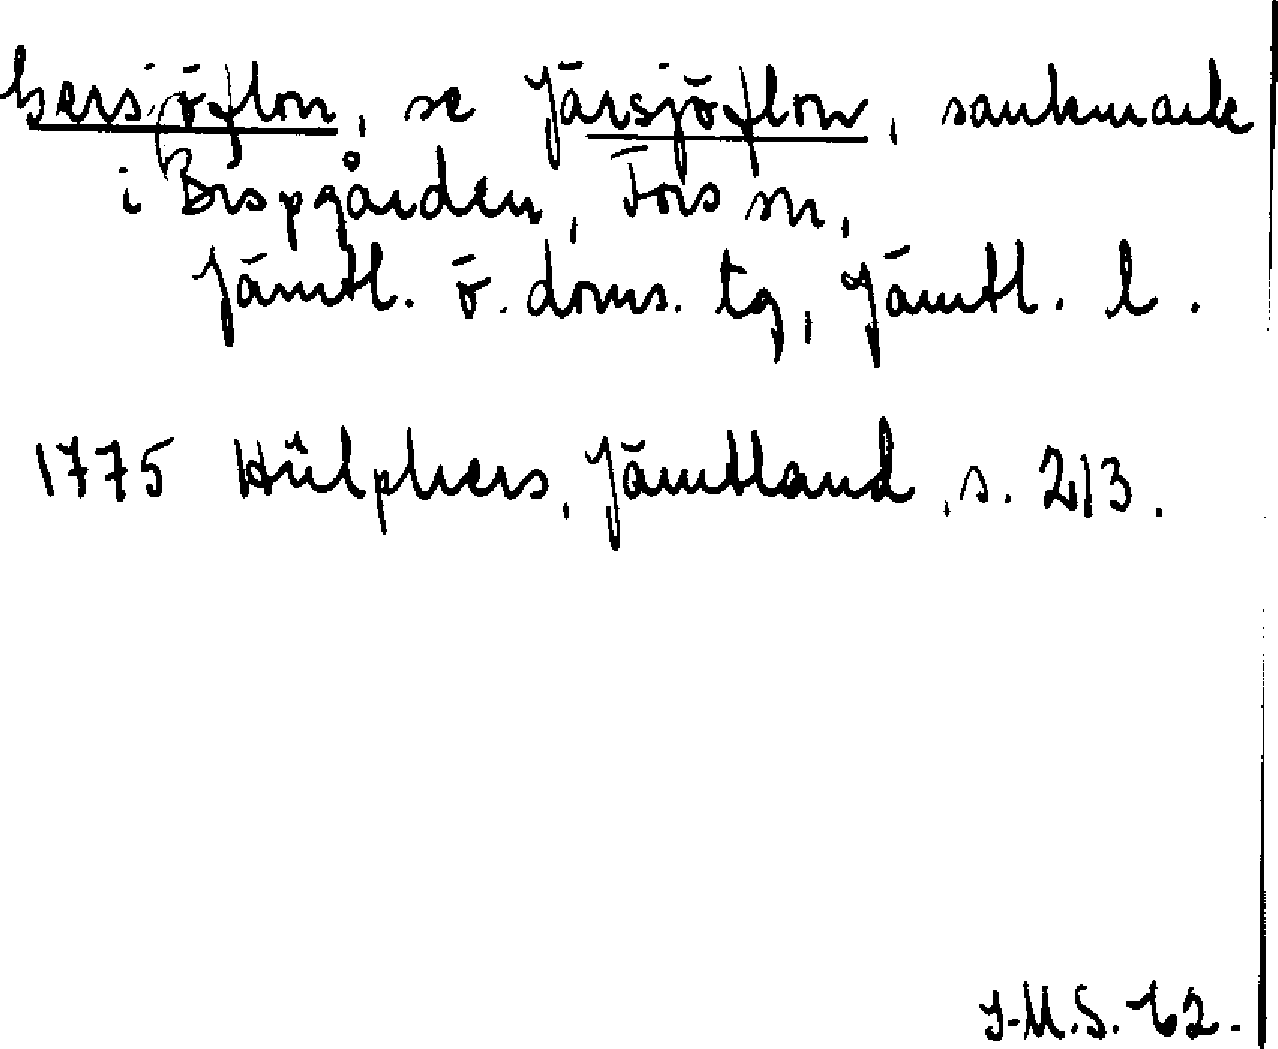 hersjöflon, se Järsjöflon, sankmark
i Bispgården, Fors sn,
Jämtl. ö. doms. tg, Jämtl. l.
1775 Hülphers, Jämtland, s. 213.
I-M.S. 62.